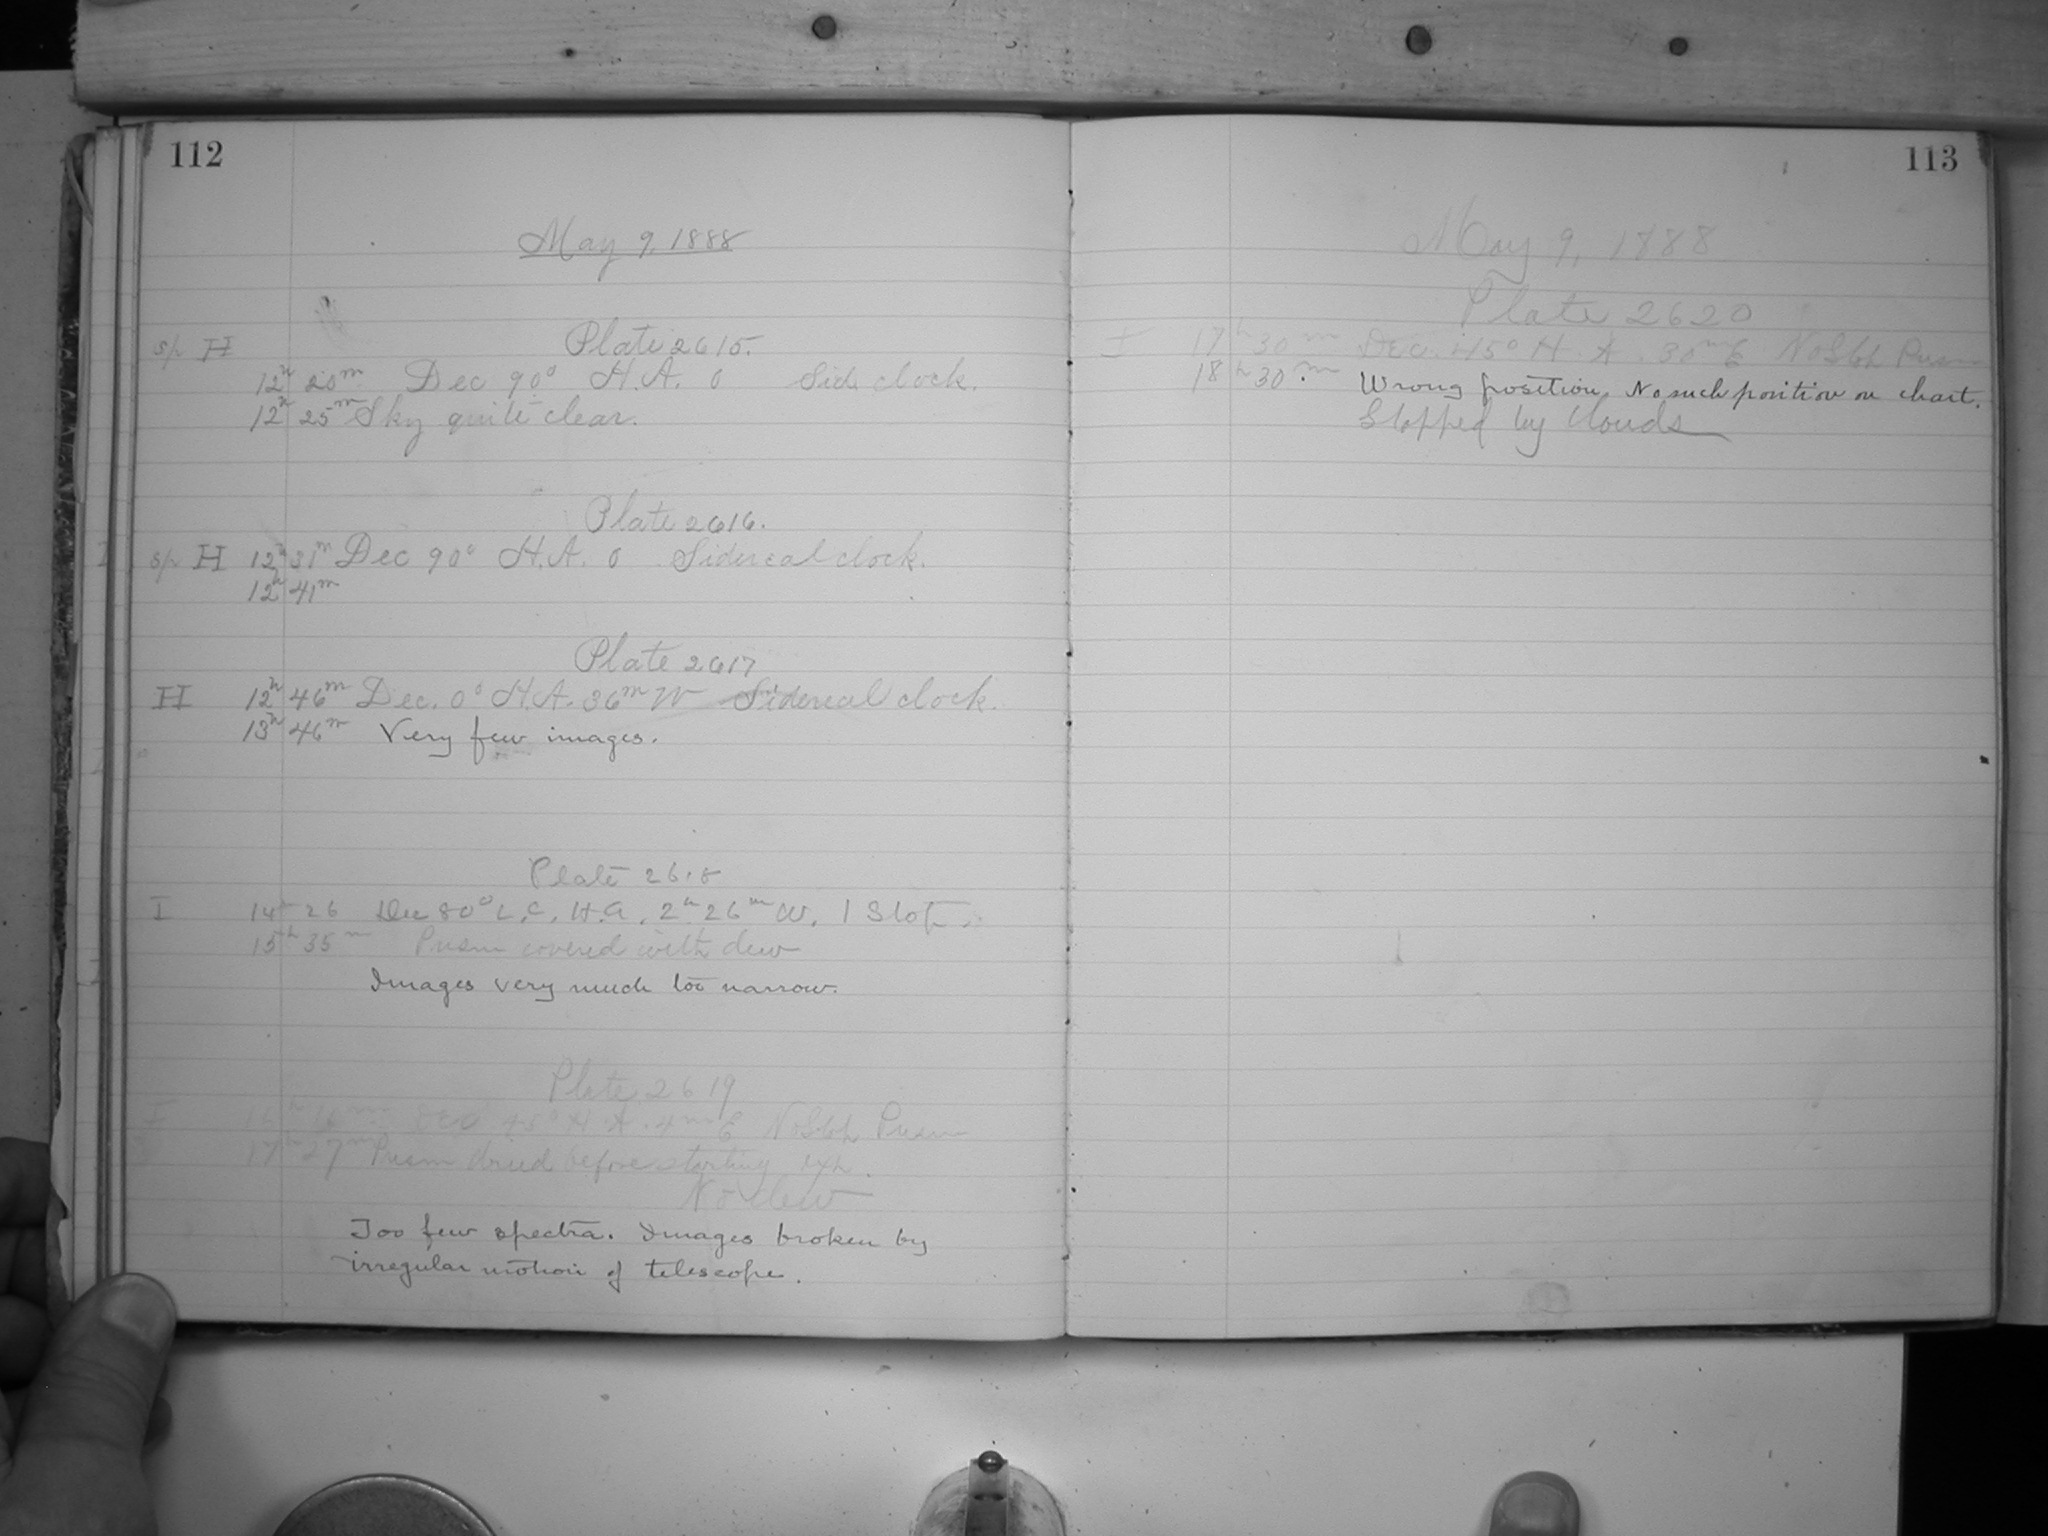 112
May 9, 1888
Plate 2615.
sp H
12h 20m Dec 90° H.A. 0 Side clock.
12h 25m Sky quite clear.
Plate 2616.
sp H 12h 31m Dec 90° H.A. 0 Sidereal clock.
12h 41m
Plate 2617
H 12h 46m Dec. 0° H.A. 36m W Sidereal clock.
13h 46m Very few images.
Plate 2618
I 14h 26 Dec 80° L.C. H.A. 2h 26m W. 1 Stop.
15h 35m Prism covered with dew
Images very much too narrow.
Plate 2619
I Dec 45° H.A. 4m E No Stop Prism
17h 27m Prism dried before starting
No dew
Too few spectra. Images broken by
irregular motion of telescope.
113
May 9, 1888
Plate 2620
I 17h 30m Dec. 45° H.A. 30m E No Stop Prism
18h 30m Wrong position. No such position on chart.
Stopped by Clouds